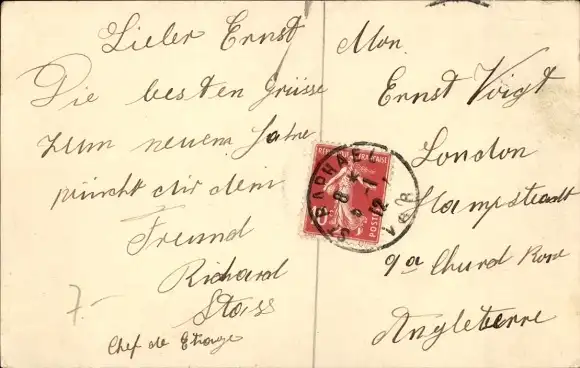 Lieber Ernst
Die besten Grüsse
zum neuem Jahre
wüncht dir dein
Freund
Richard
Stoss
Chef de Etage
7.-
Mon.
Ernst Voigt
London
Hampsteadt
9a Churd Row
Angleterre
ST RAPHAEL
VAR
8 * 5 -1 12
RÉPUBLIQUE FRANÇAISE
POSTES